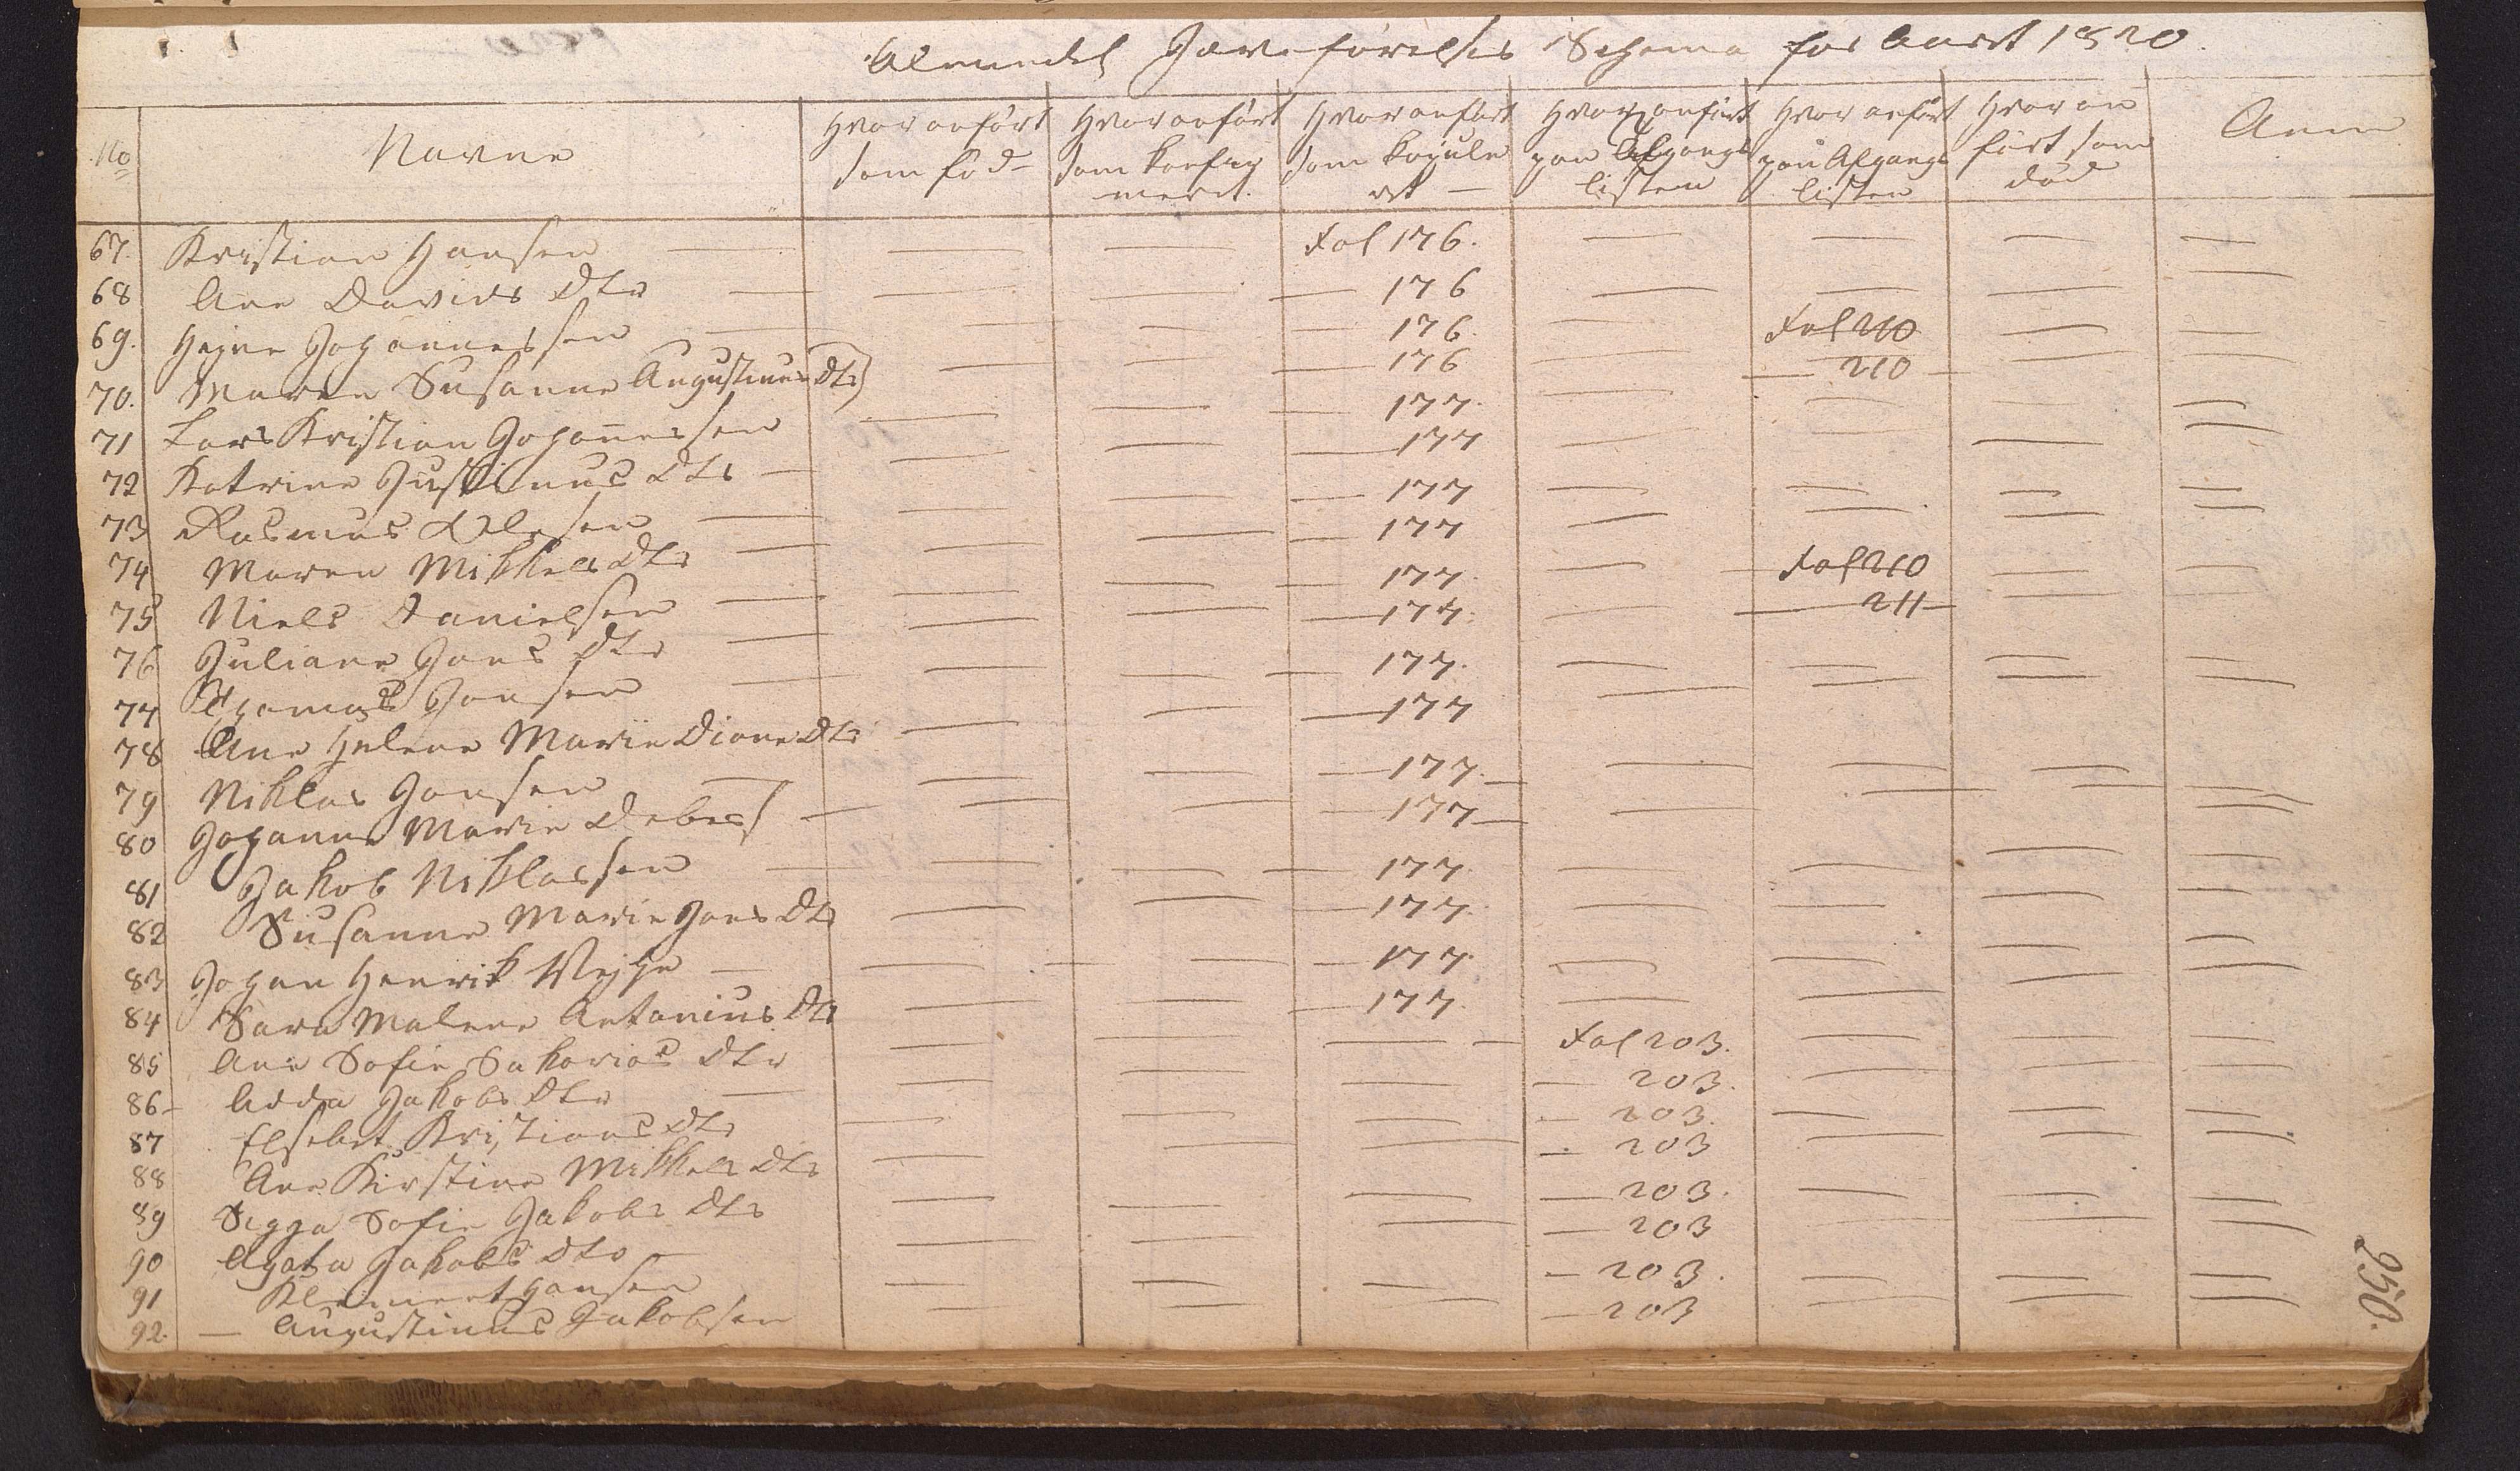 Almindel Jævnførelses Schema for Aaret 1820.
No Navne Hvor anført som fød Hvor anført som konfirmeret. Hvor anført som kopuleret Hvor anført paa Afgangslisten Hvor anført paa Afgangslisten Hvor anført som død Anm
67. Kristian Hansen — — — Fol 176. — — — —
68 Ane Davids Dtr — — — 176 — — — —
69. Hejne Johannessen — — — 176. — Fol 210 — —
70. Maren Susanne Augustinus Dtr — — 176 — 210 — —
71 Lars Kristian Johannessen — — 177. — — — —
72 Katrine Justinus Dtr — — — 177 — — — —
73 Rasmus Olesen — — — 177 — — — —
74 Maren Mikkels Dtr — — — 177 — — — —
75 Niels Danielsen — — — 177. — Fol 210 — —
76 Juliane Joens Dtr — — — 177. — 211 — —
77 Thomas Joensen — — — 177. — — — —
78 Ane Helene Marie Diane Dtr — — 177 — — — —
79 Niklas Joensen — — — 177. — — — —
80 Johanne Marie Debes — — — 177 — — — —
81 Jakob Niklassen — — — 177 — — — —
82 Susanne Marie Joens Dtr — — 177. — — — —
83 Johan Henrik Wejhe — — — 177. — — — —
84 Sara Malene Antonius Dtr — — 177. — — — —
85 Ane Sofie Sakarias Dtr — — — Fol 203. — — —
86 Adda Jakobs Dtr — — — — 203. — — —
87 Elsebet Kristians Dtr — — — 203. — — —
88 Ane Kirstine Mikkels Dtr — — — 203 — — —
89 Sigga Sofie Jakobs Dtr — — — 203. — — —
90 Agata Jakobs Dtr — — — — 203 — — —
91 Klement Hansen — — — 203. — — —
92. — Augustinus Jakobsen — — — 203 — — —
950.